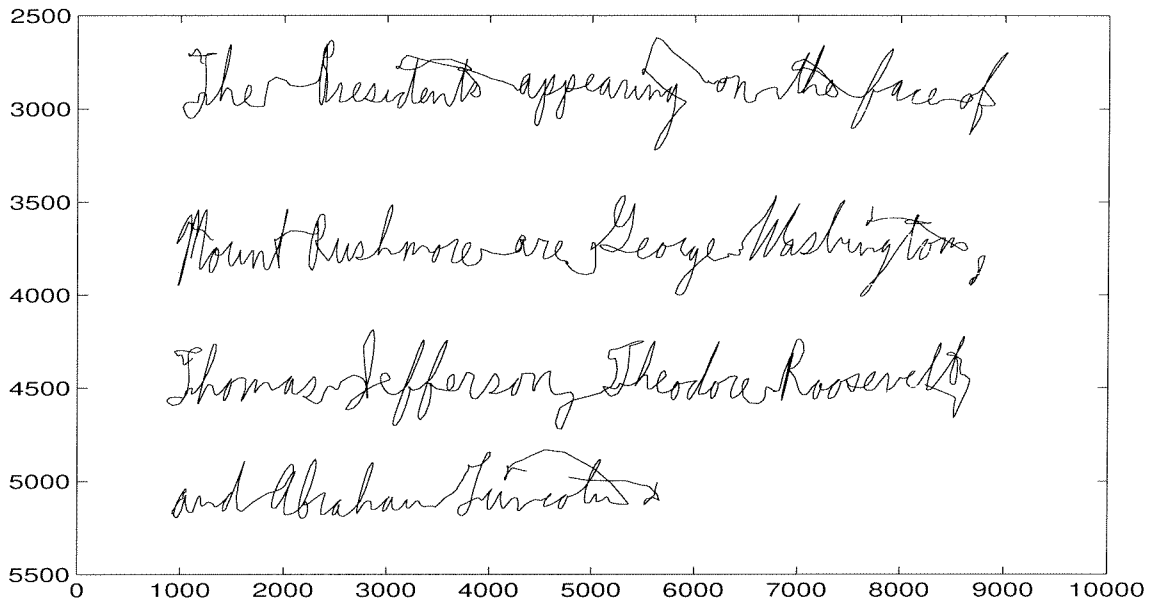 2500
3000
3500
4000
4500
5000
5500
The Presidents appearing on the face of
Mount Rushmore are George Washington,
Thomas Jefferson, Theodore Roosevelt,
and Abraham Lincoln.
0 1000 2000 3000 4000 5000 6000 7000 8000 9000 10000